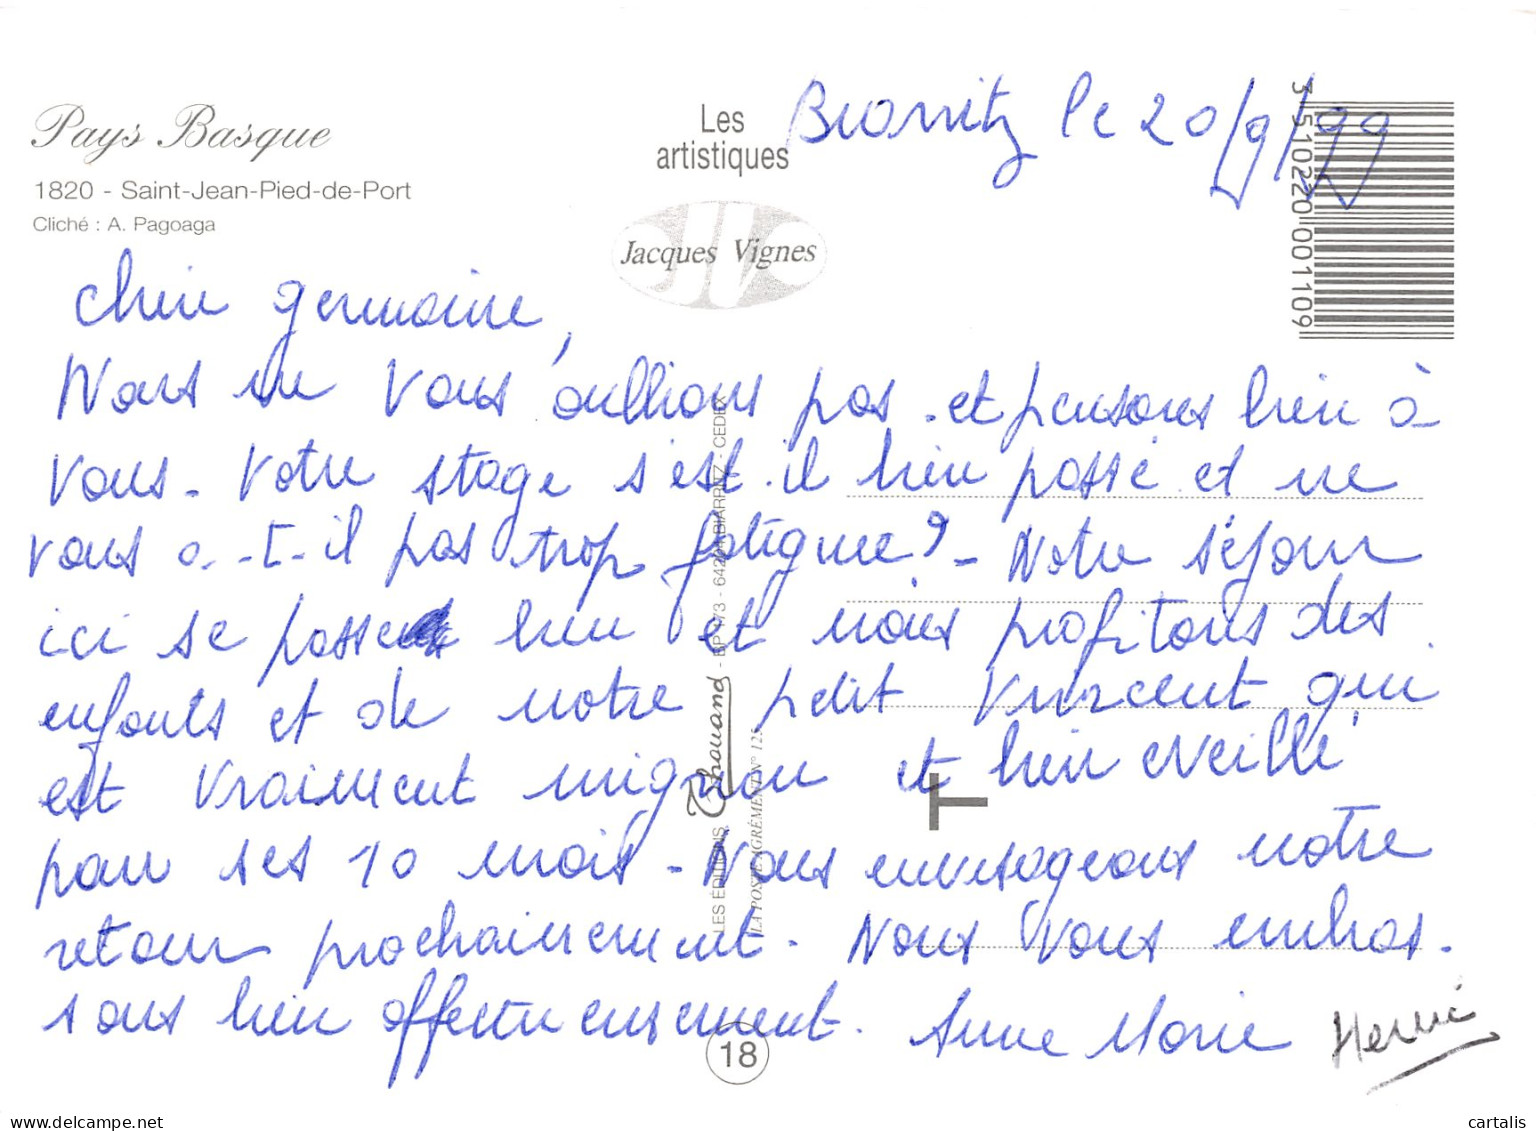 Pays Basque
1820 - Saint-Jean-Pied-de-Port
Cliché : A. Pagoaga
Les
artistiques
Jacques Vignes
Biarritz le 20/9/99
3 510220 001109
Chère germaine,
Nous ne vous oublions pas et pensons bien à
vous - Votre stage s'est il bien passé et ne
vous a-t-il pas trop fatiguée ? - Notre séjour
ici se passe bien et nous profitons des
enfants et de notre petit Vincent qui
est vraiment mignon et bien éveillé
pour ses 10 mois - Nous envisageons notre
retour prochainement. Nous vous embras-
sons bien affectueusement. Anne Marie Hervé
LES ÉDITIONS Thouand - BP 173 - 64204 BIARRITZ - CEDEX
LA POSTE AGRÉMENT N° 125
18
delcampe.net
cartalis